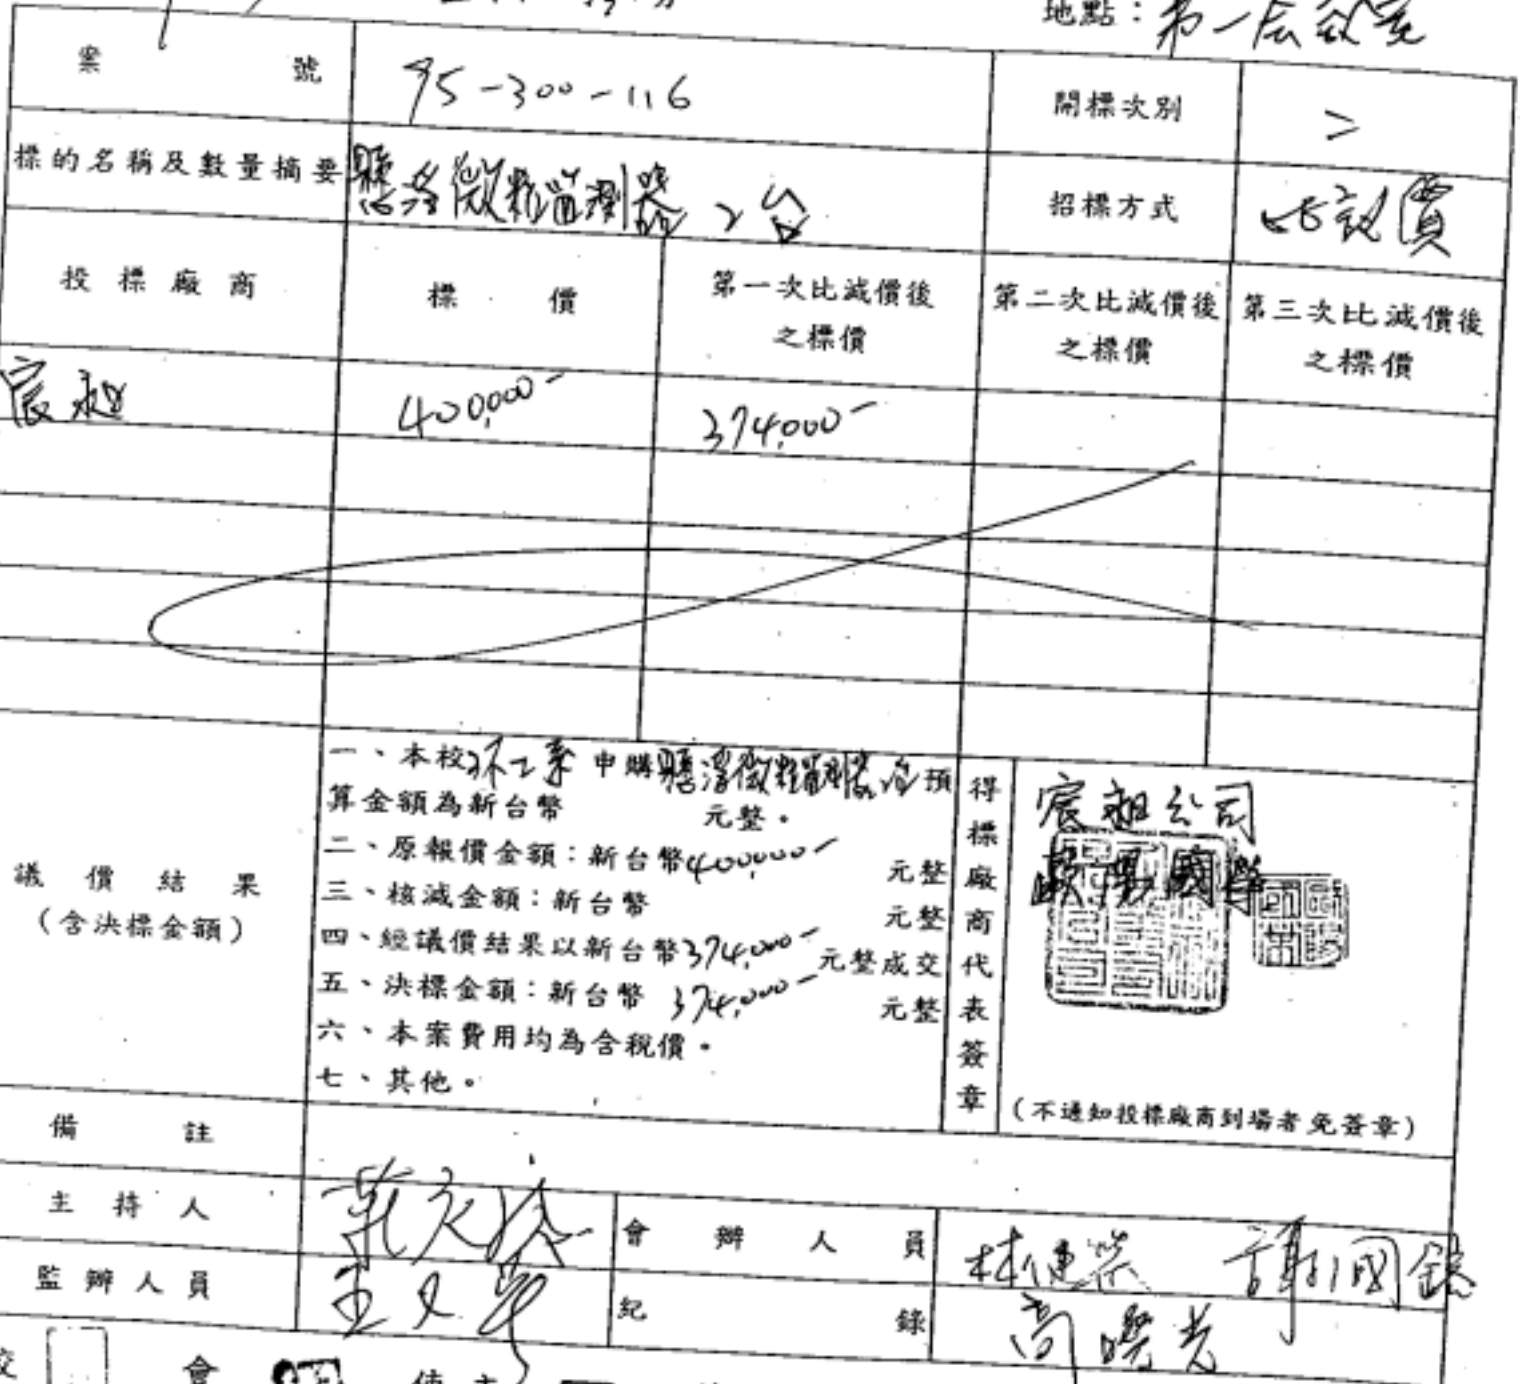 地點：第一會議室
案號 95-300-116 開標次別 2
標的名稱及數量摘要 懸浮微粒監測器 2台 招標方式 比議價
投標廠商 標價 第一次比減價後之標價 第二次比減價後之標價 第三次比減價後之標價
宸昶 400,000- 374,000-
議價結果
（含決標金額）
一、本校環工系申購懸浮微粒監測器2台預
算金額為新台幣 元整。
二、原報價金額：新台幣400,000- 元整
三、核減金額：新台幣 元整
四、經議價結果以新台幣374,000-元整成交
五、決標金額：新台幣 374,000- 元整
六、本案費用均為含稅價。
七、其他。
得標廠商代表簽章
宸昶公司
（不通知投標廠商到場者免簽章）
備註
主持人 會辦人員
監辦人員 紀錄